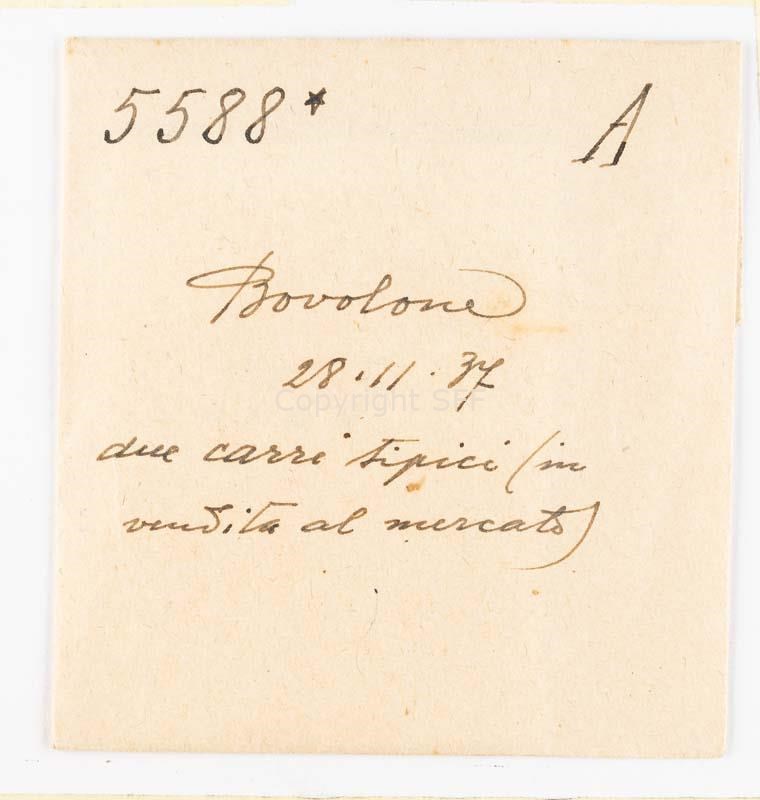 5588* A
Bovolone
28.11.37
Copyright SFF
due carri tipici (in
vendita al mercato)